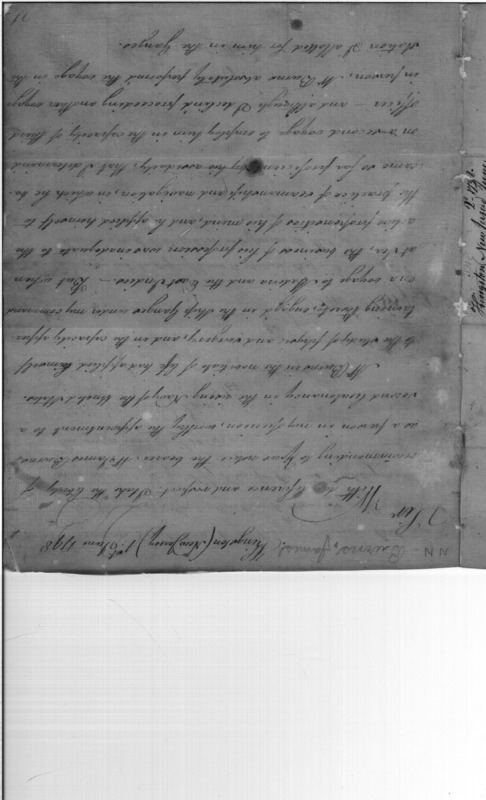 NN - Barron, James
Kingston (New Jersey) 1st June 1798
Sir
With deference and respect I take the liberty of
recommending to your notice the bearer Mr James Barron
as a person in my opinion, worthy the appointment to a
second lieutenancy in the rising Navy of the United States.
Mr Barron in the noviciate of life had applied himself
to the study of physic and surgery, and in the capacity apper-
taining thereto, engaged in the Ship Ganges under my command
on a voyage to Madeira and the East Indies. — But when
at sea, the business of his profession was inadequate to the
active propensities of his mind, and he applied himself to
the practice of seamanship and navigation, in which he be-
came so far proficient by his assiduity, that I determined
on a second voyage to employ him in the capacity of third
officer — and although I declined proceeding another voyage
in person, Mr Barron absolutely performed the voyage in the
station I allotted for him in the Ganges.
21
Kingston New Jersey June
1st 1798.